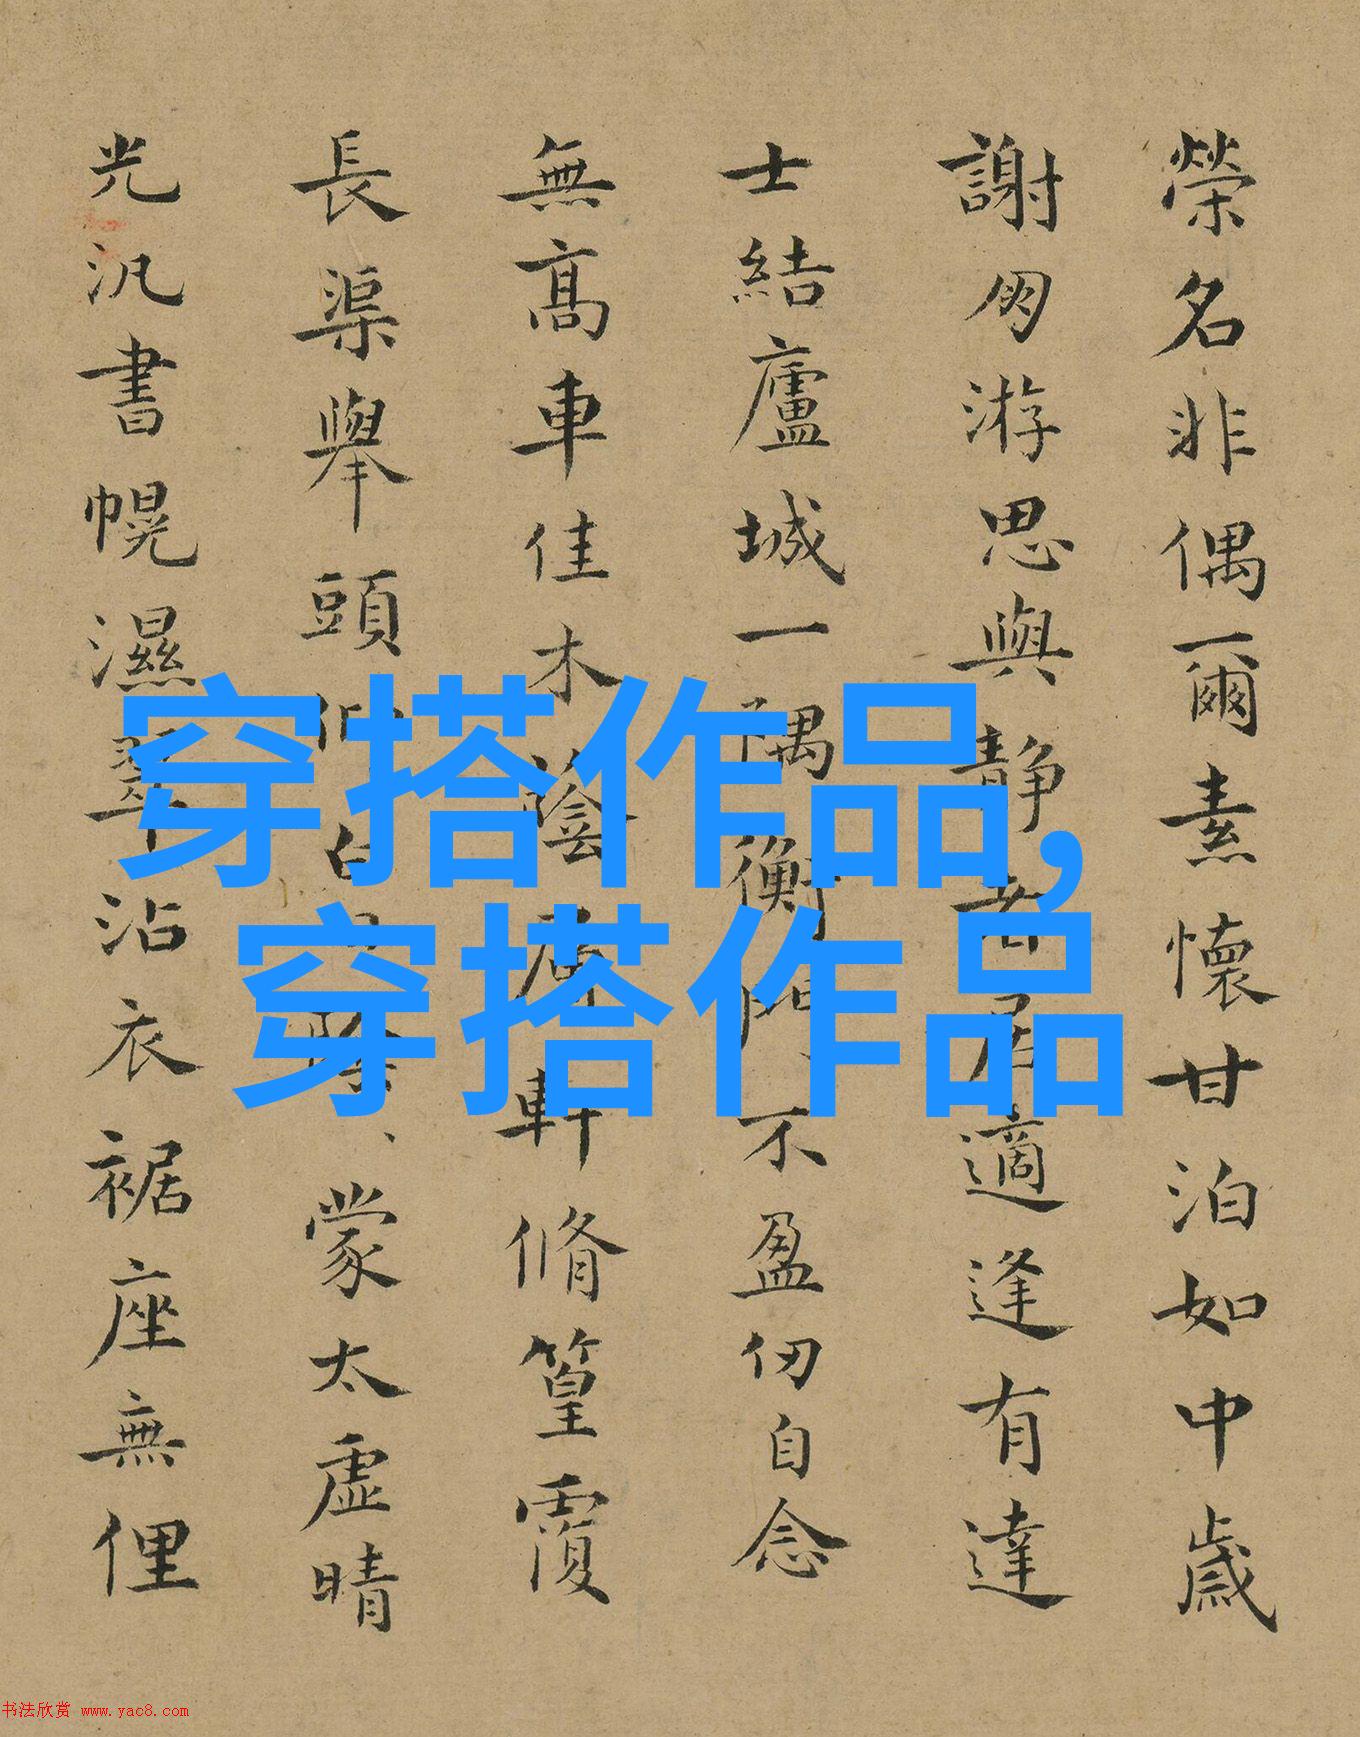 榮名非偶爾素懷甘泊如中歲
謝朋游思與静者居適逢有達
士結廬城一隅衡門不盈仞自念
無髙車佳木蔭軒脩篁覆
長渠舉頭仰白蒙太虛晴
光汎書幌濕翠沾衣裾座無俚
穿搭作品,
穿搭作品
书法欣赏 www.yac8.com